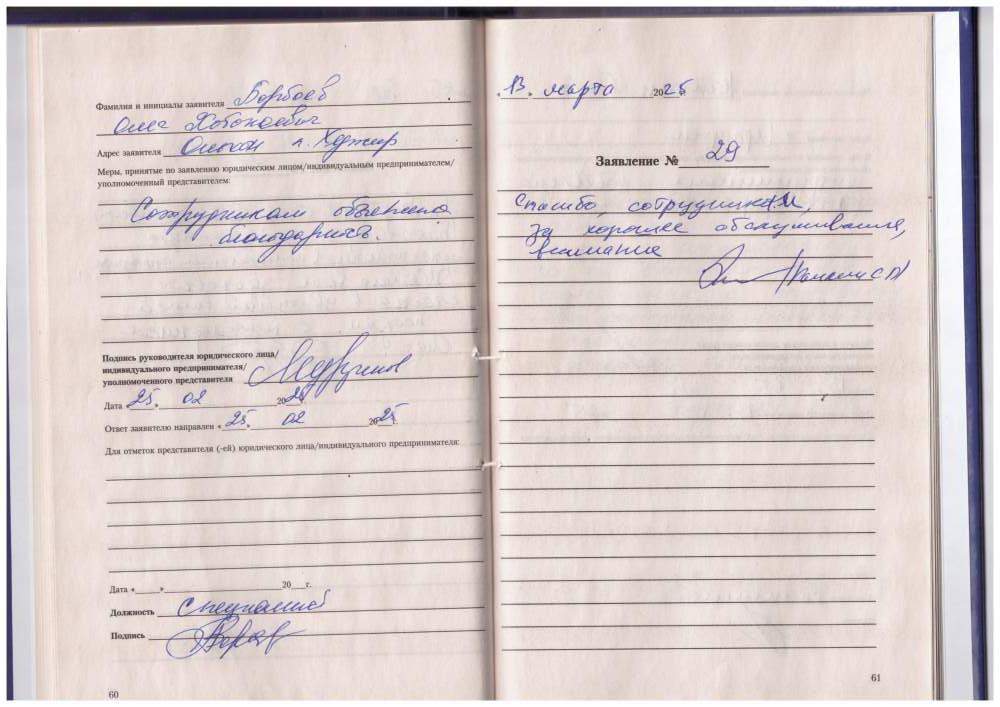 Фамилия и инициалы заявителя Борбоев
Олег
Адрес заявителя
Меры, принятые по заявлению юридическим лицом/индивидуальным предпринимателем/
уполномоченный представителем:
Сотрудникам объявлена
благодарность.
Подпись руководителя юридического лица/
индивидуального предпринимателя/
уполномоченного представителя
Дата «25.» 02 2025г.
Ответ заявителю направлен «25. 02 2025г.
Для отметок представителя (-ей) юридического лица/индивидуального предпринимателя:
Дата «____»____20___г.
Должность специалист
Подпись
60
13. марта 2025
Заявление № 29
Спасибо, сотрудникам,
за хорошее обслуживание,
внимание
61